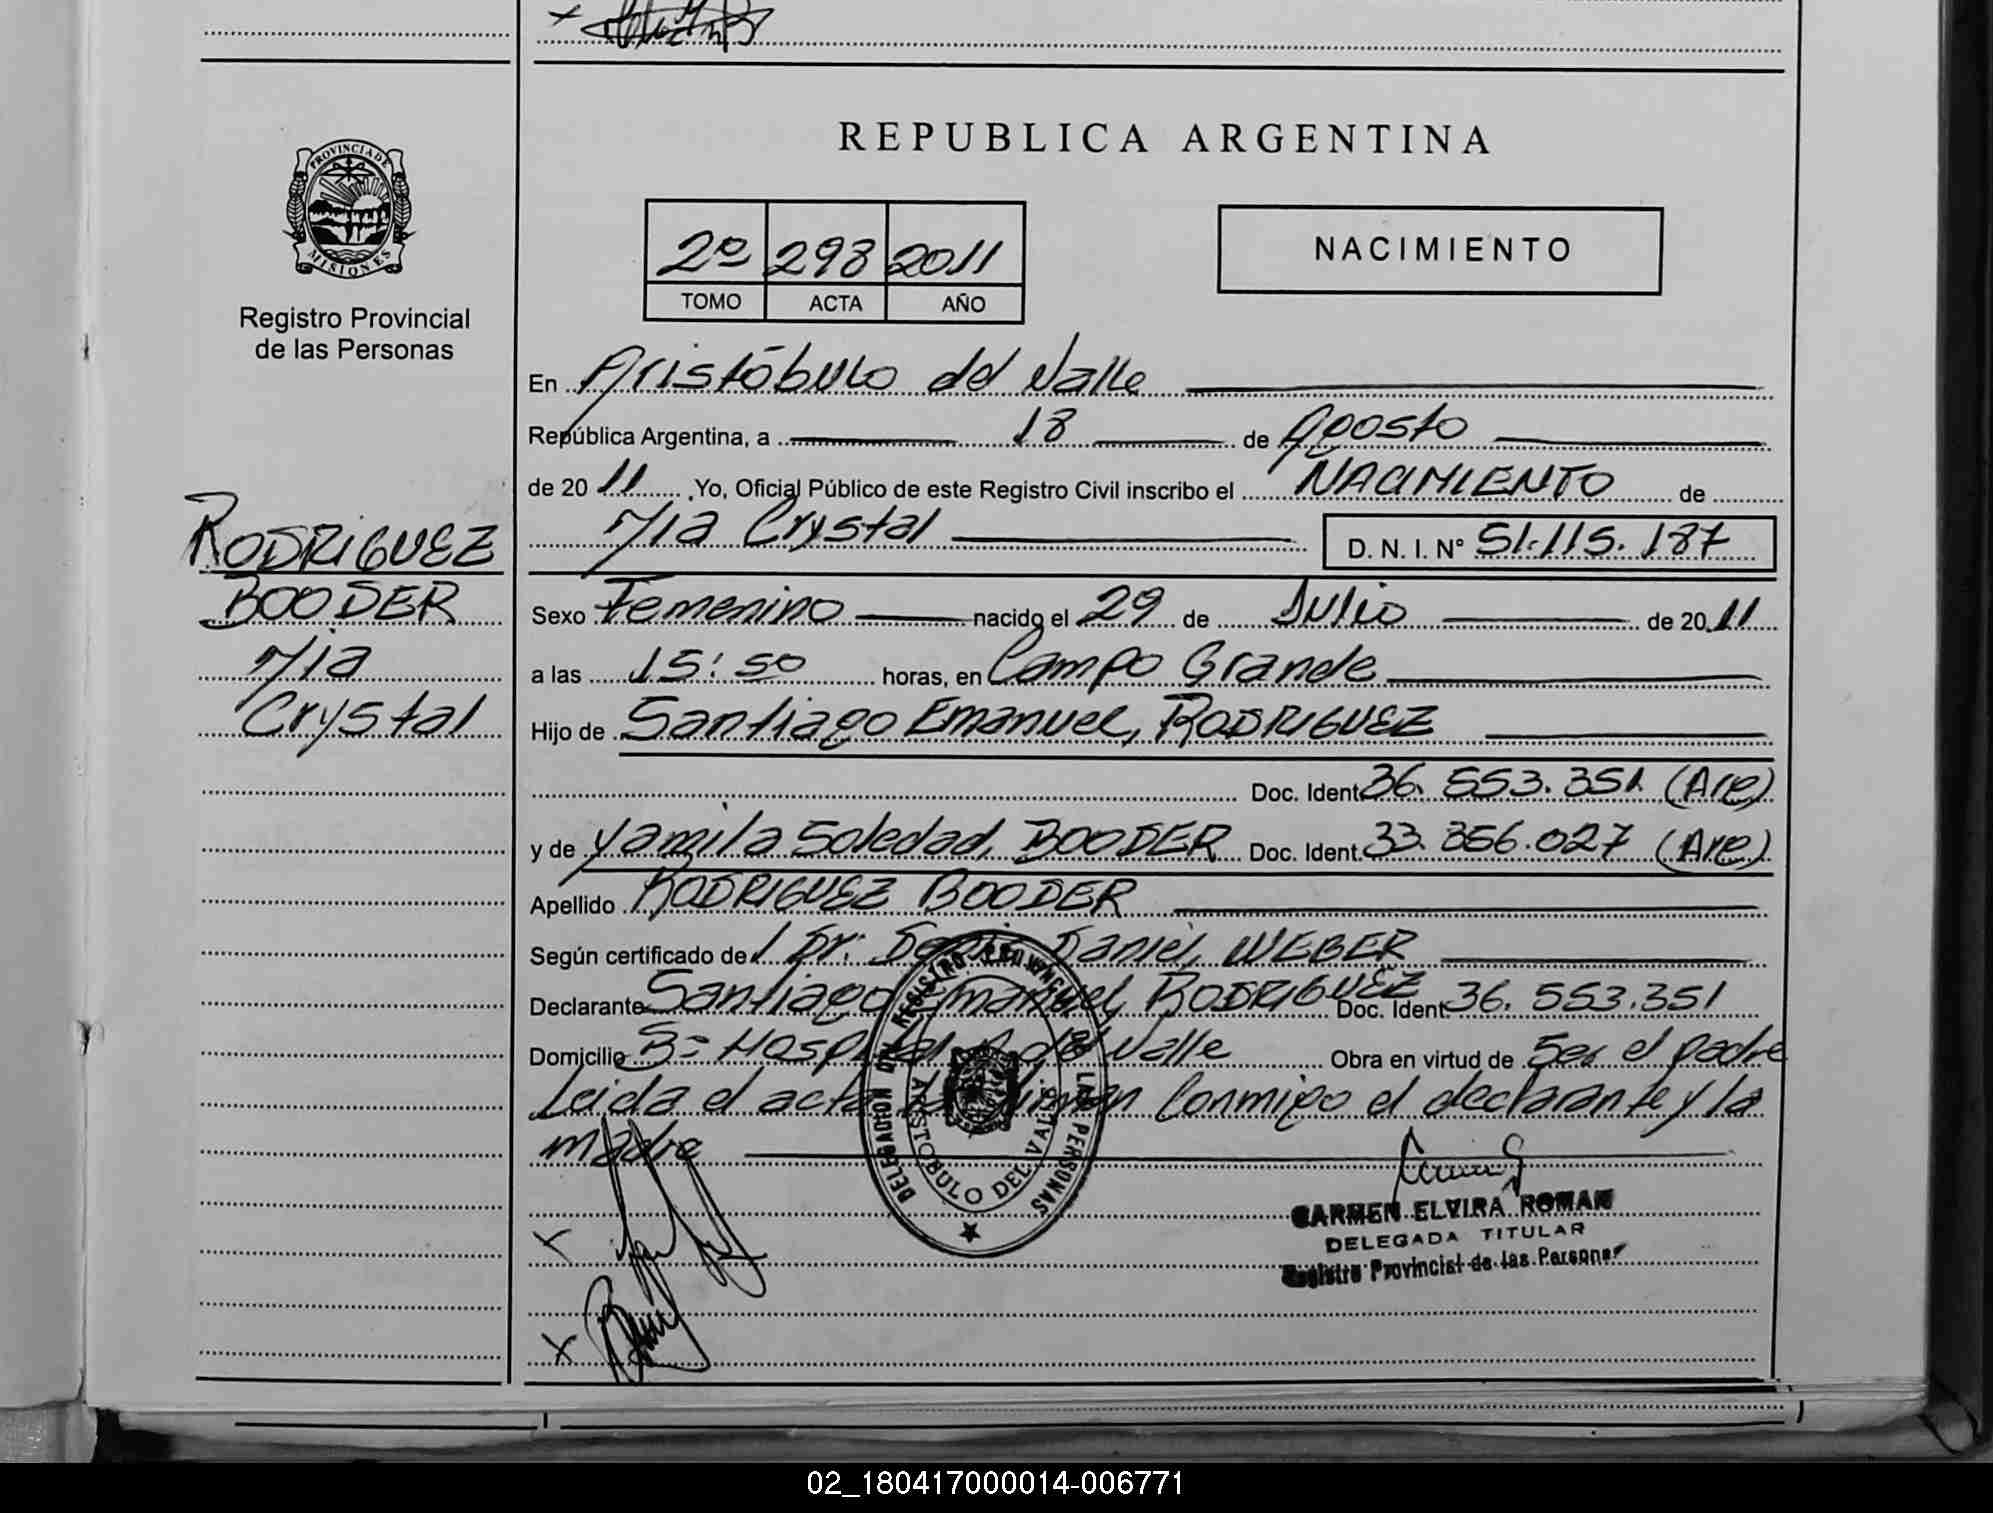 REPUBLICA ARGENTINA
PROVINCIA DE
MISIONES
Registro Provincial
de las Personas
2º 298 2011
TOMO ACTA AÑO
NACIMIENTO
En Aristóbulo del Valle
República Argentina, a 18 de Agosto
de 20 11 .Yo, Oficial Público de este Registro Civil inscribo el NACIMIENTO de
Mia Crystal D. N. I. Nº 51.115.187
RODRIGUEZ
BOODER
Mia
Crystal
Sexo Femenino nacido el 29 de Julio de 20 11
a las 15:50 horas, en Campo Grande
Hijo de Santiago Emanuel, RODRIGUEZ
Doc. Ident. 36.553.351 (Arg)
y de Yamila Soledad, BOODER Doc. Ident. 33.356.027 (Arg)
Apellido RODRIGUEZ BOODER
Según certificado de l Dr. Daniel, WEBER
Declarante Santiago Emanuel, RODRIGUEZ Doc. Ident. 36.553.351
Domicilio Bº Hospital A. del Valle Obra en virtud de Ser el padre
Leida el acta la firman conmigo el declarante y la
madre
DELEGACION DEL REGISTRO PROVINCIAL DE LAS PERSONAS
ARISTOBULO DEL VALLE
CARMEN ELVIRA ROMAN
DELEGADA TITULAR
Registro Provincial de las Personas
02_180417000014-006771